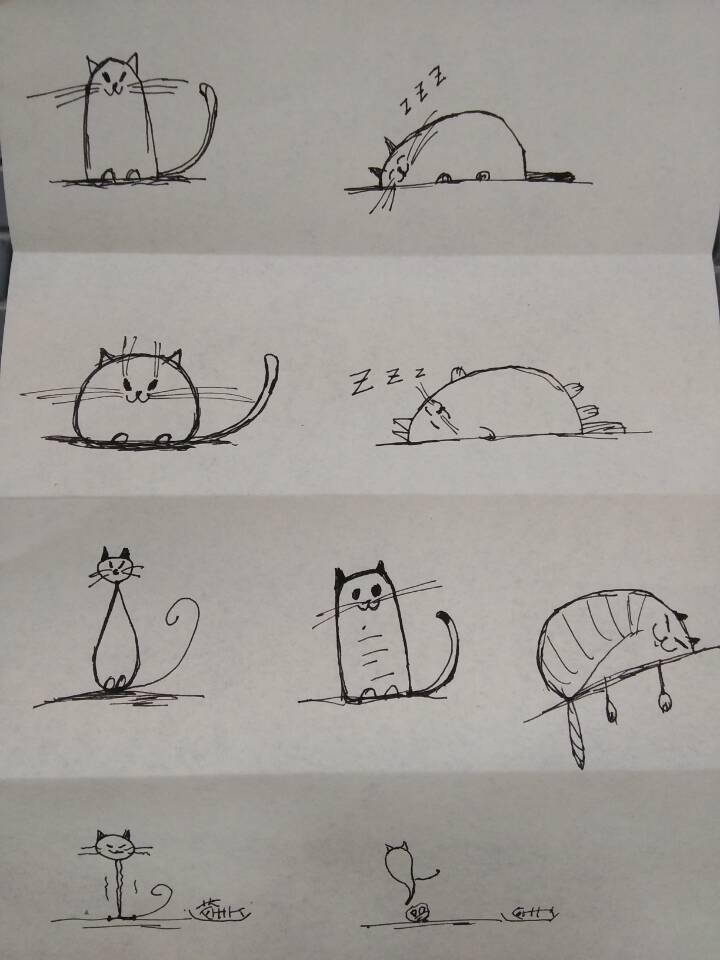 Z Z Z
Z Z Z